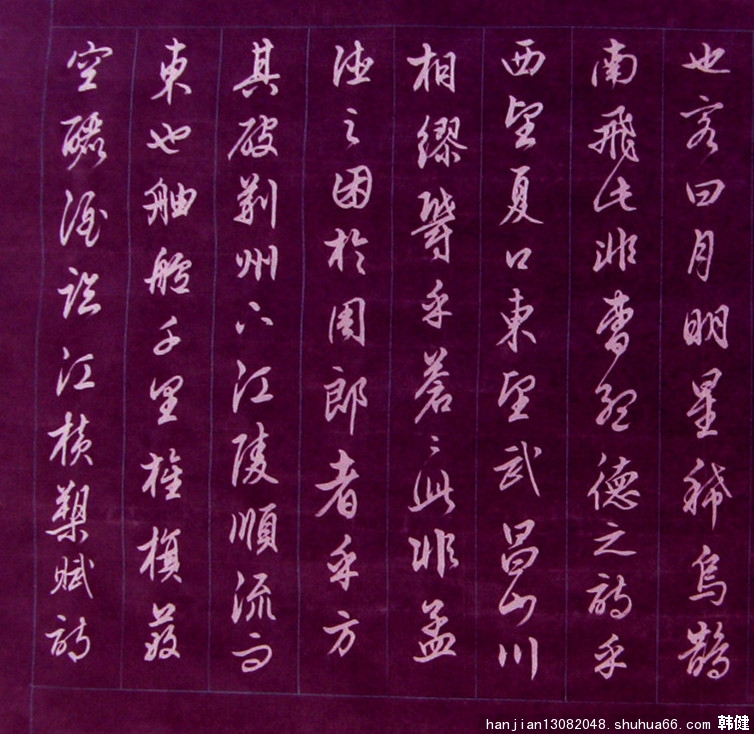 也客曰月明星稀烏鵲
南飛此非曹孟德之詩乎
西望夏口東望武昌山川
相繆鬱乎蒼〻此非孟
德之困於周郎者乎方
其破荊州下江陵順流而
東也舳艫千里旌旗蔽
空釃酒臨江橫槊賦詩
hanjian13082048.shuhua66.com 韩健